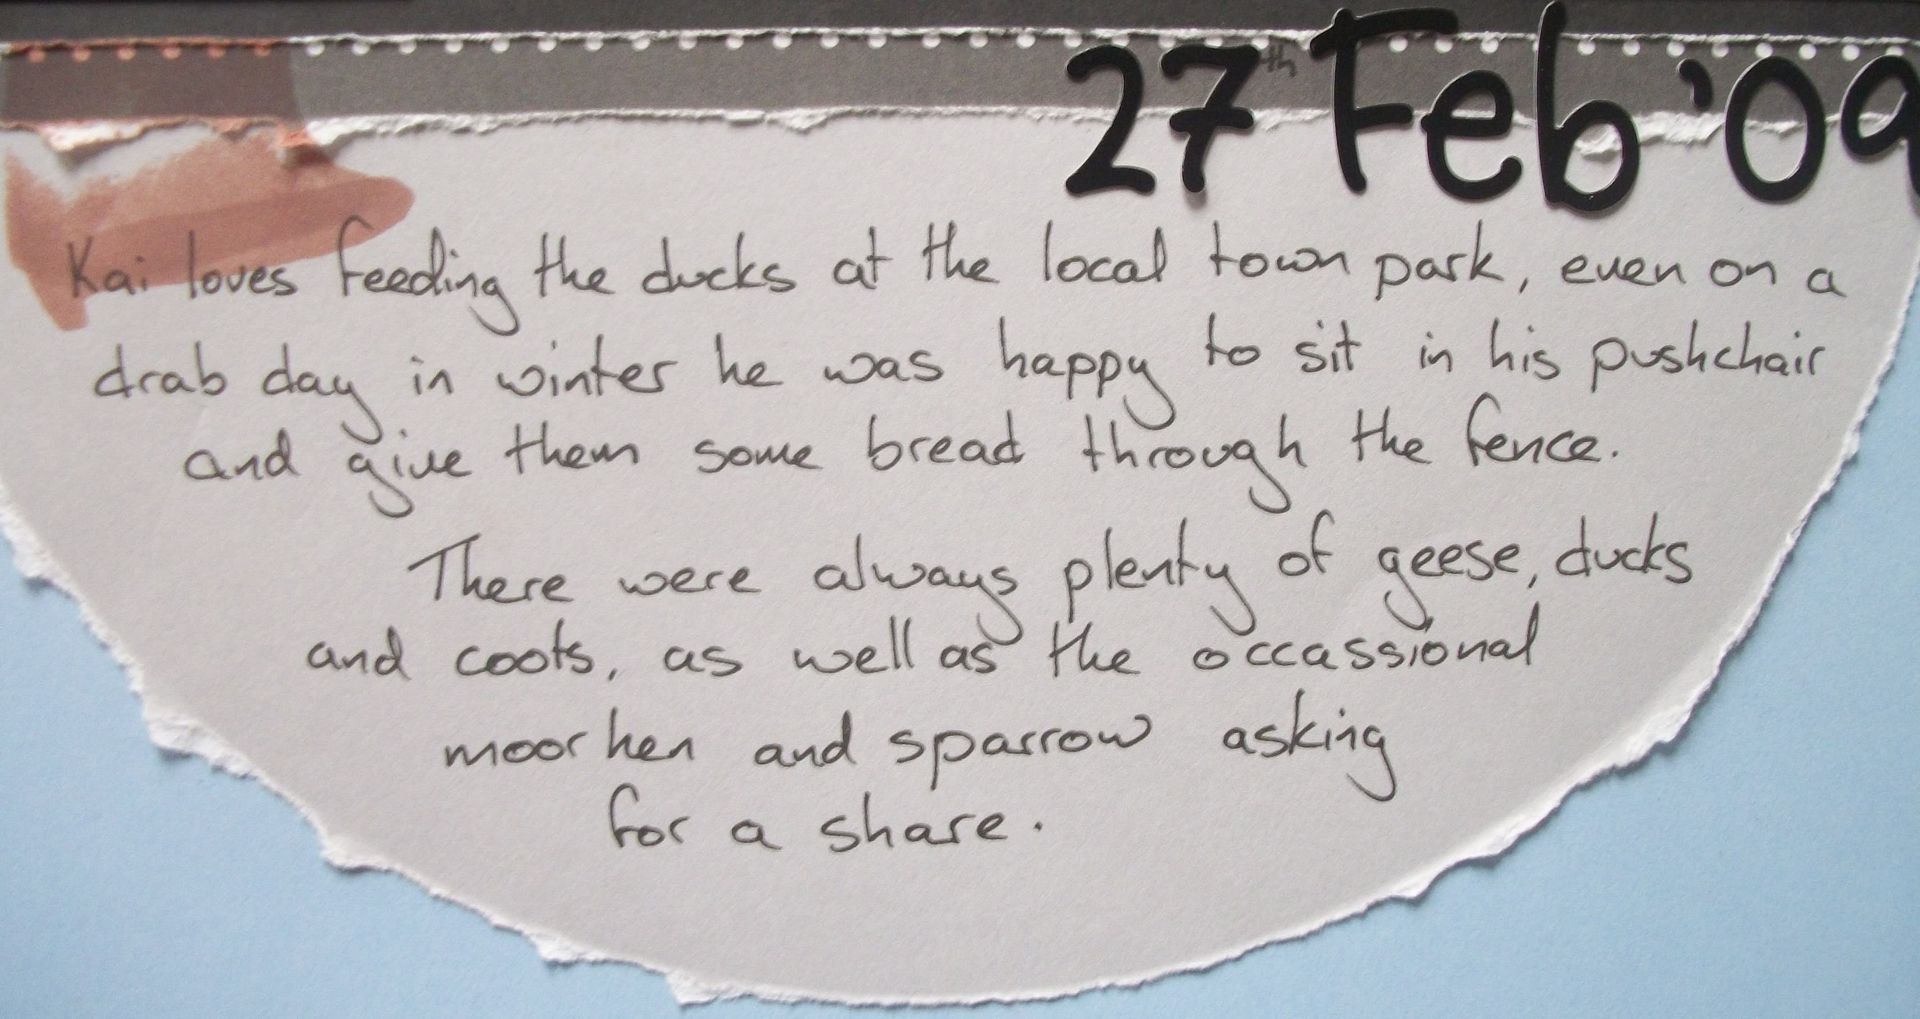 27th Feb '09
Kai loves feeding the ducks at the local town park, even on a
drab day in winter he was happy to sit in his pushchair
and give them some bread through the fence.
There were always plenty of geese, ducks
and coots, as well as the occassional
moorhen and sparrow asking
for a share.